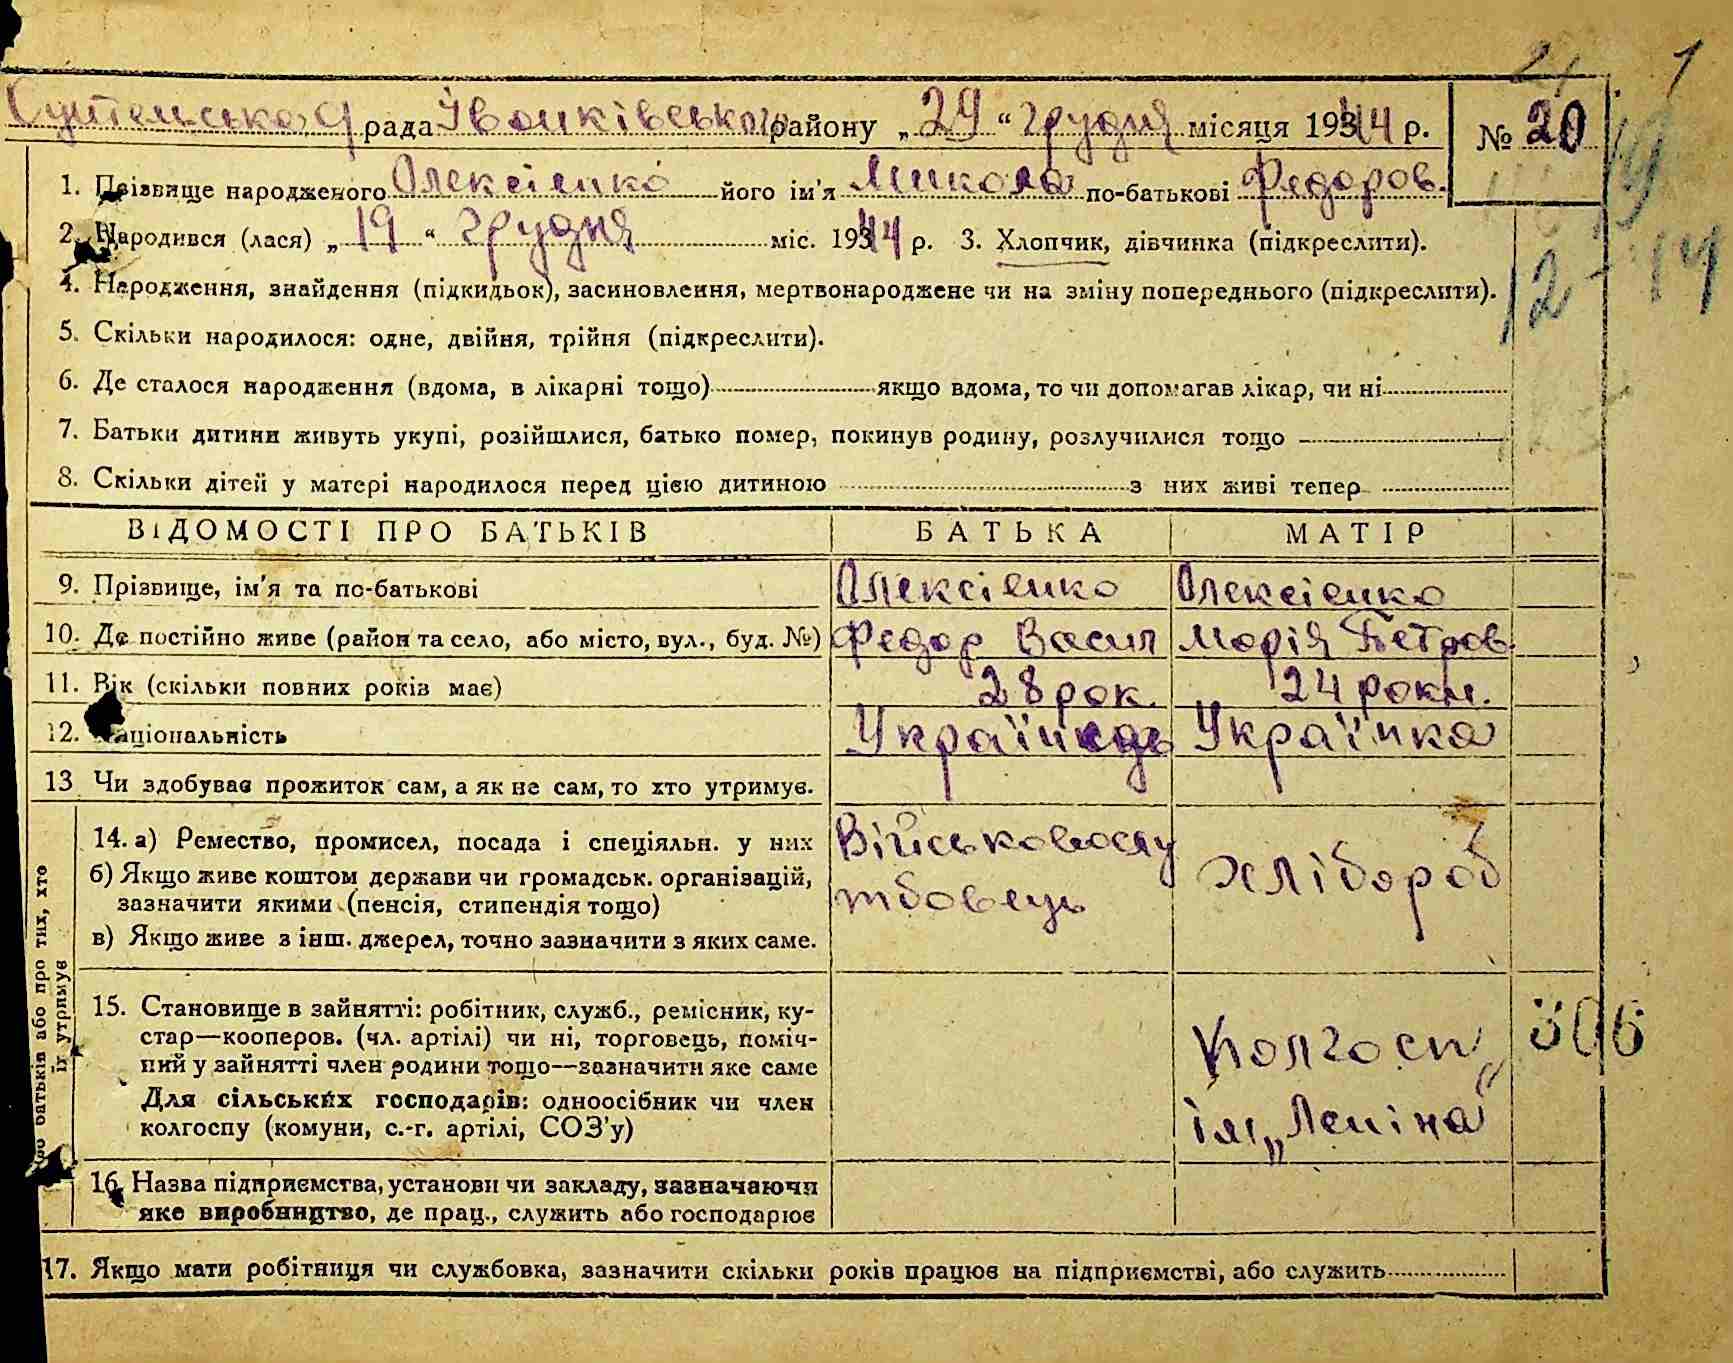 21 1
рада Іванківського району „29“ грудня місяця 1944 р. № 20
1. Прізвище народженого Олексієнко його ім'я Микола по-батькові Федоров.
19
2. Народився (лася) „19“ грудня міс. 1944 р. 3. Хлопчик, дівчинка (підкреслити).
12-14
4. Народження, знайдення (підкидьок), засиновлення, мертвонароджене чи на зміну попереднього (підкреслити).
5. Скільки народилося: одне, двійня, трійня (підкреслити).
6. Де сталося народження (вдома, в лікарні тощо) якщо вдома, то чи допомагав лікар, чи ні
7. Батьки дитини живуть укупі, розійшлися, батько помер, покинув родину, розлучилися тощо
8. Скільки дітей у матері народилося перед цією дитиною з них живі тепер
ВІДОМОСТІ ПРО БАТЬКІВ БАТЬКА МАТІР
9. Прізвище, ім'я та по-батькові Олексієнко Олексієнко
10. Де постійно живе (район та село, або місто, вул., буд. №) Федор Васил Марія Петров.
11. Вік (скільки повних років має) 28 рок. 24 роки.
12. Національність Українець Українка
13 Чи здобуває прожиток сам, а як не сам, то хто утримує.
14. а) Ремество, промисел, посада і спеціяльн. у них Військовослу хлібороб
б) Якщо живе коштом держави чи громадськ. організацій, жбовець
зазначити якими (пенсія, стипендія тощо)
в) Якщо живе з інш. джерел, точно зазначити з яких саме.
батьків або про тих, хто
їх утримує
15. Становище в зайнятті: робітник, служб., ремісник, ку-
стар—кооперов. (чл. артілі) чи ні, торговець, поміч- Колгосп 306
ний у зайнятті член родини тощо—зазначити яке саме
Для сільських господарів: одноосібник чи член ім „Леніна“
колгоспу (комуни, с.-г. артілі, СОЗ'у)
16. Назва підприємства, установи чи закладу, зазначаючи
яке виробництво, де прац., служить або господарює
17. Якщо мати робітниця чи службовка, зазначити скільки років працює на підприємстві, або служить